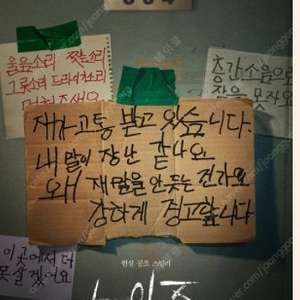 울음소리 쫓는소리
그릇소리 드라이기소리
멈춰주세요
층간소음으로
잠을 못자요
제가 고통 받고 있습니다.
내 말이 장난 같나요
왜 제 말을 안 듣는 건가요
강하게 경고합니다
이곳에서 더
못 살겠어요
현실 공포 스릴러
노이즈